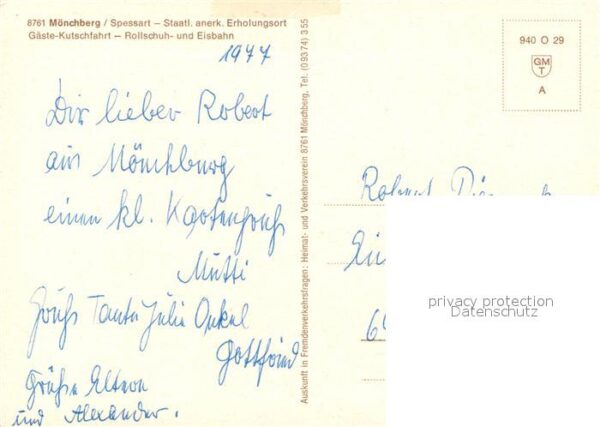 8761 Mönchberg / Spessart – Staatl. anerk. Erholungsort
Gäste-Kutschfahrt – Rollschuh- und Eisbahn
1977
Dir lieber Robert
aus Mönchburg
einen kl. Kartengruß
Mutti
Gruß Tante Julie Onkel
Gottfried
Grüße Eltern
und Alexander.
Auskunft in Fremdenverkehrsfragen: Heimat- und Verkehrsverein 8761 Mönchberg, Tel. (09374) 355
940 O 29
GM
T
A
Robert
privacy protection
Datenschutz